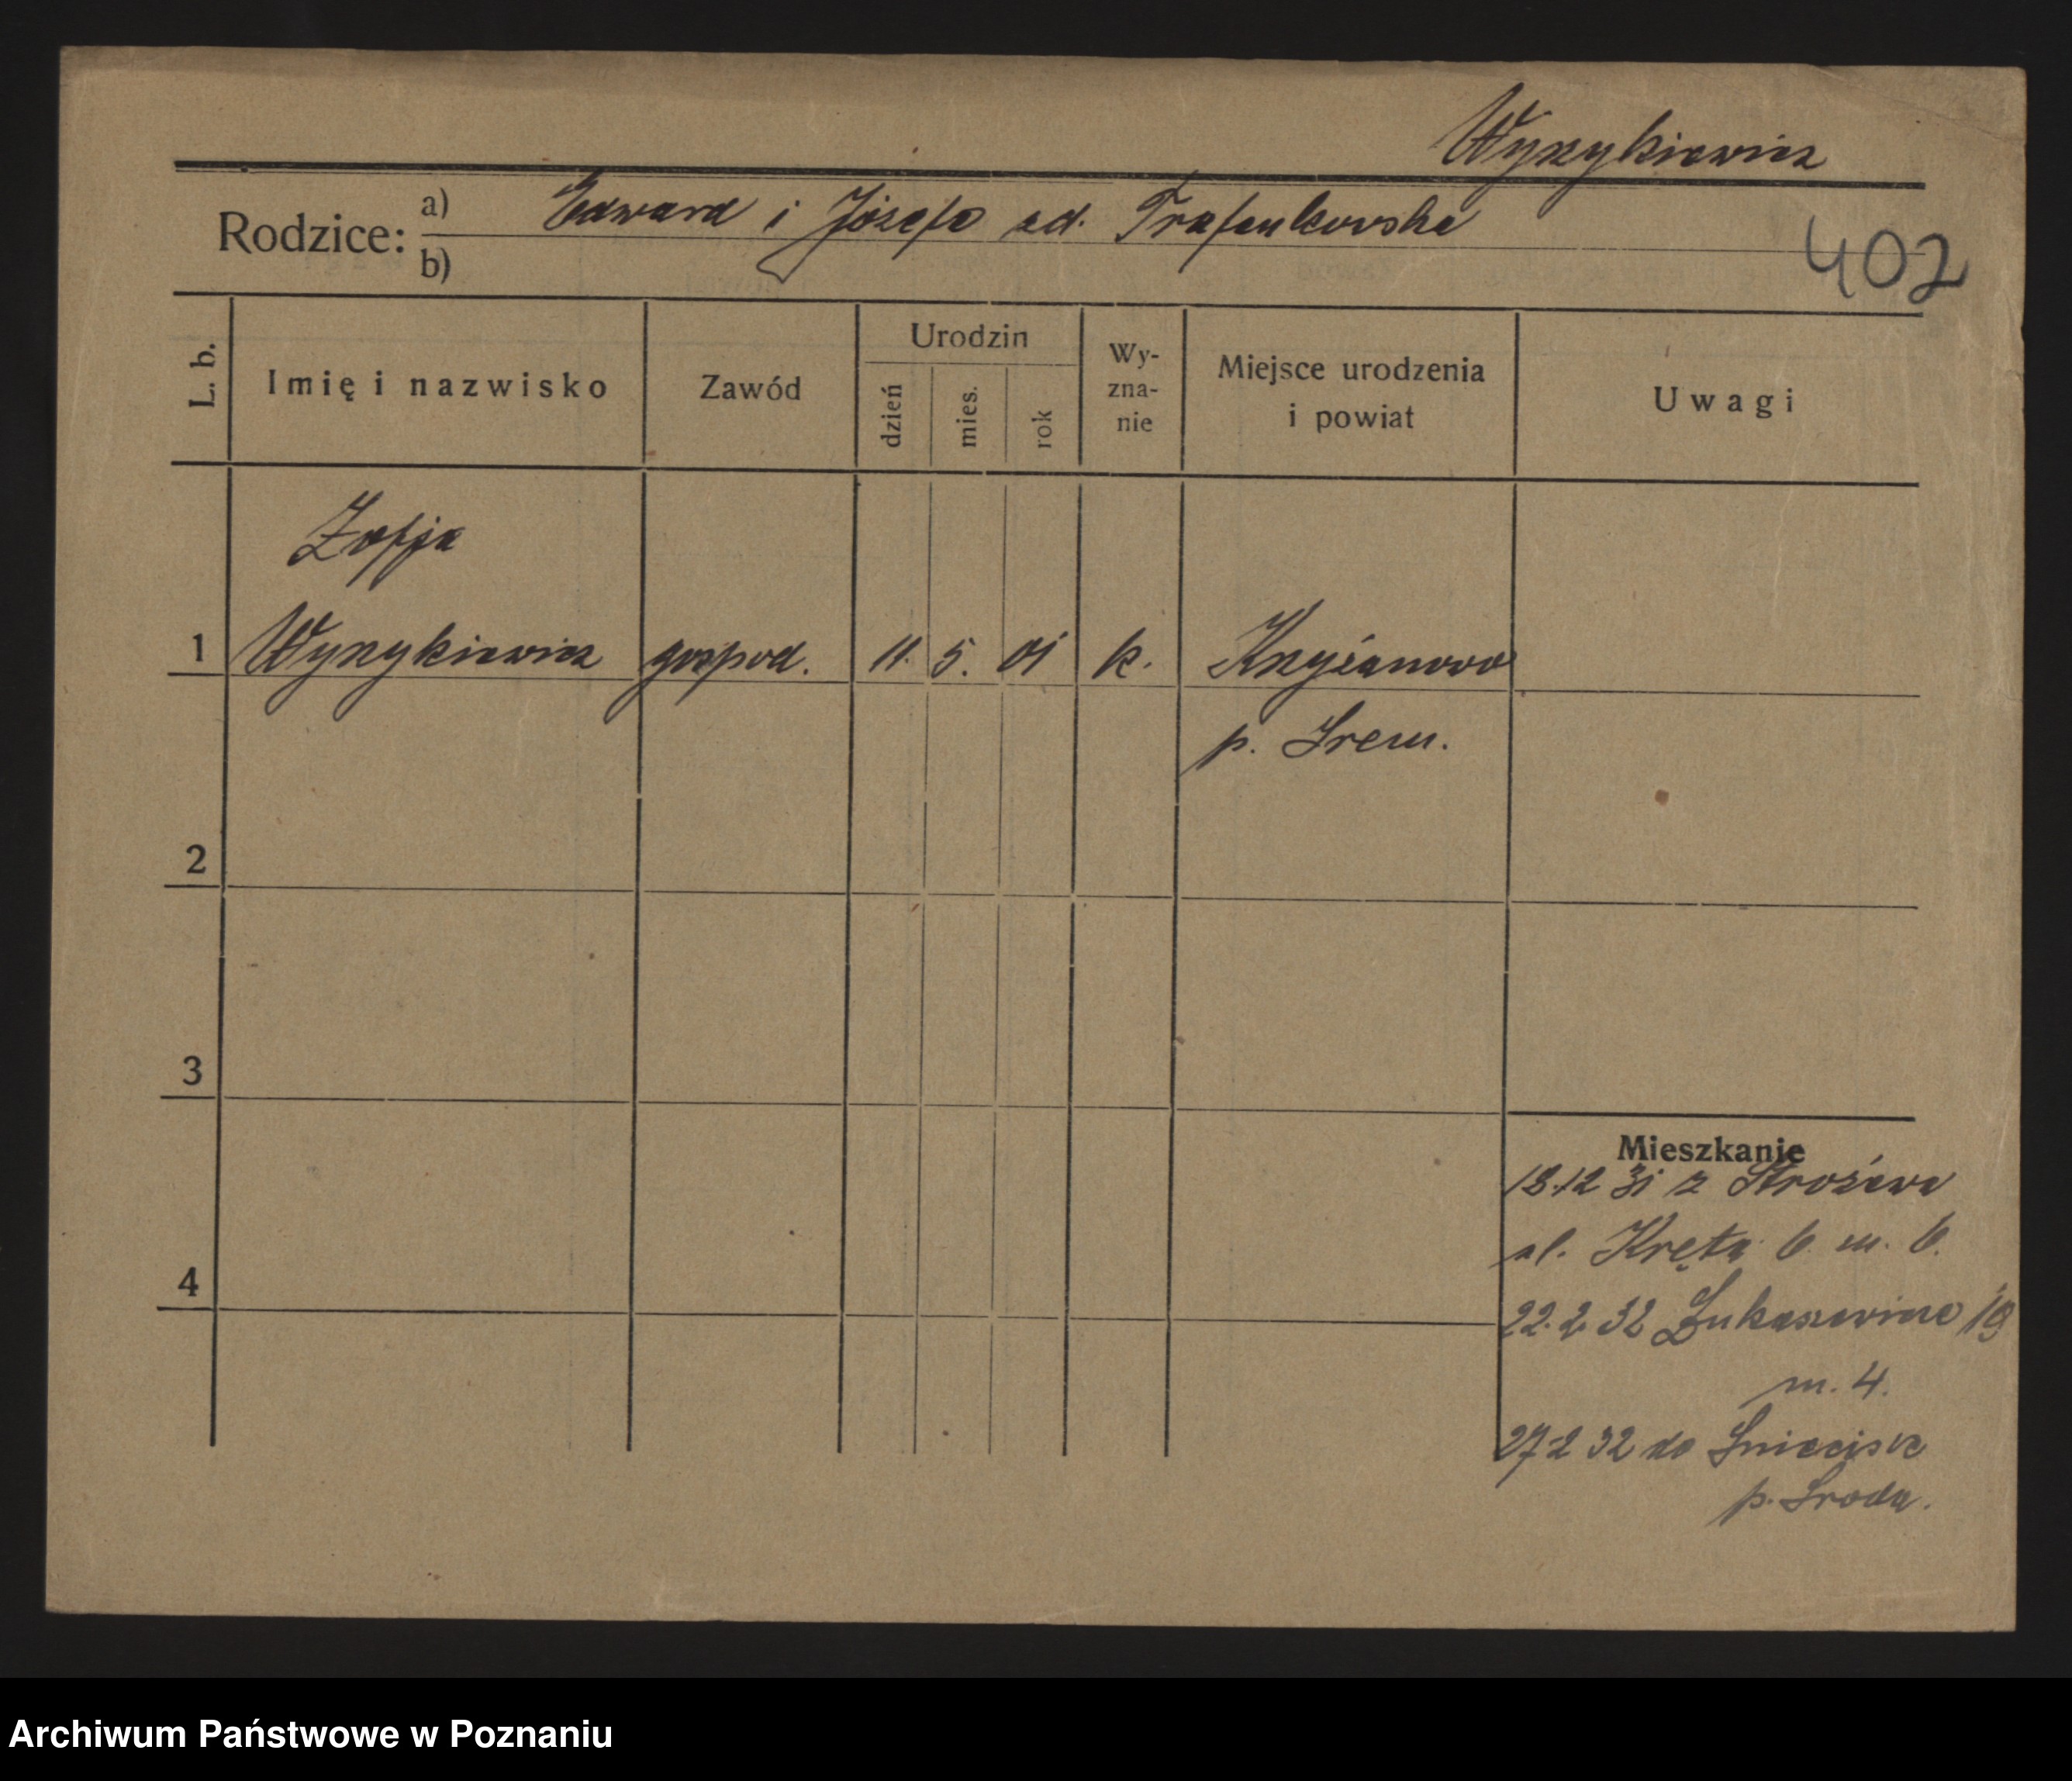 Wyzykiewicz
Rodzice: a) Edward i Józefa zd. Trafankowska
b)
402
L. b. Imię i nazwisko Zawód Urodzin dzień mies. rok Wy-zna-nie Miejsce urodzenia i powiat Uwagi
Zofja
1 Wyzykiewicz gospod. 11. 5. 01 k. Krzyżanowo
p. Śrem.
2
3
Mieszkanie
18.12 31 z Strożewa
ul. Kręta 6 m. 6.
4
22.2 32 Łukaszewicza 18
m. 4.
27.2 32 do Śnieciska
p. Środa.
Archiwum Państwowe w Poznaniu